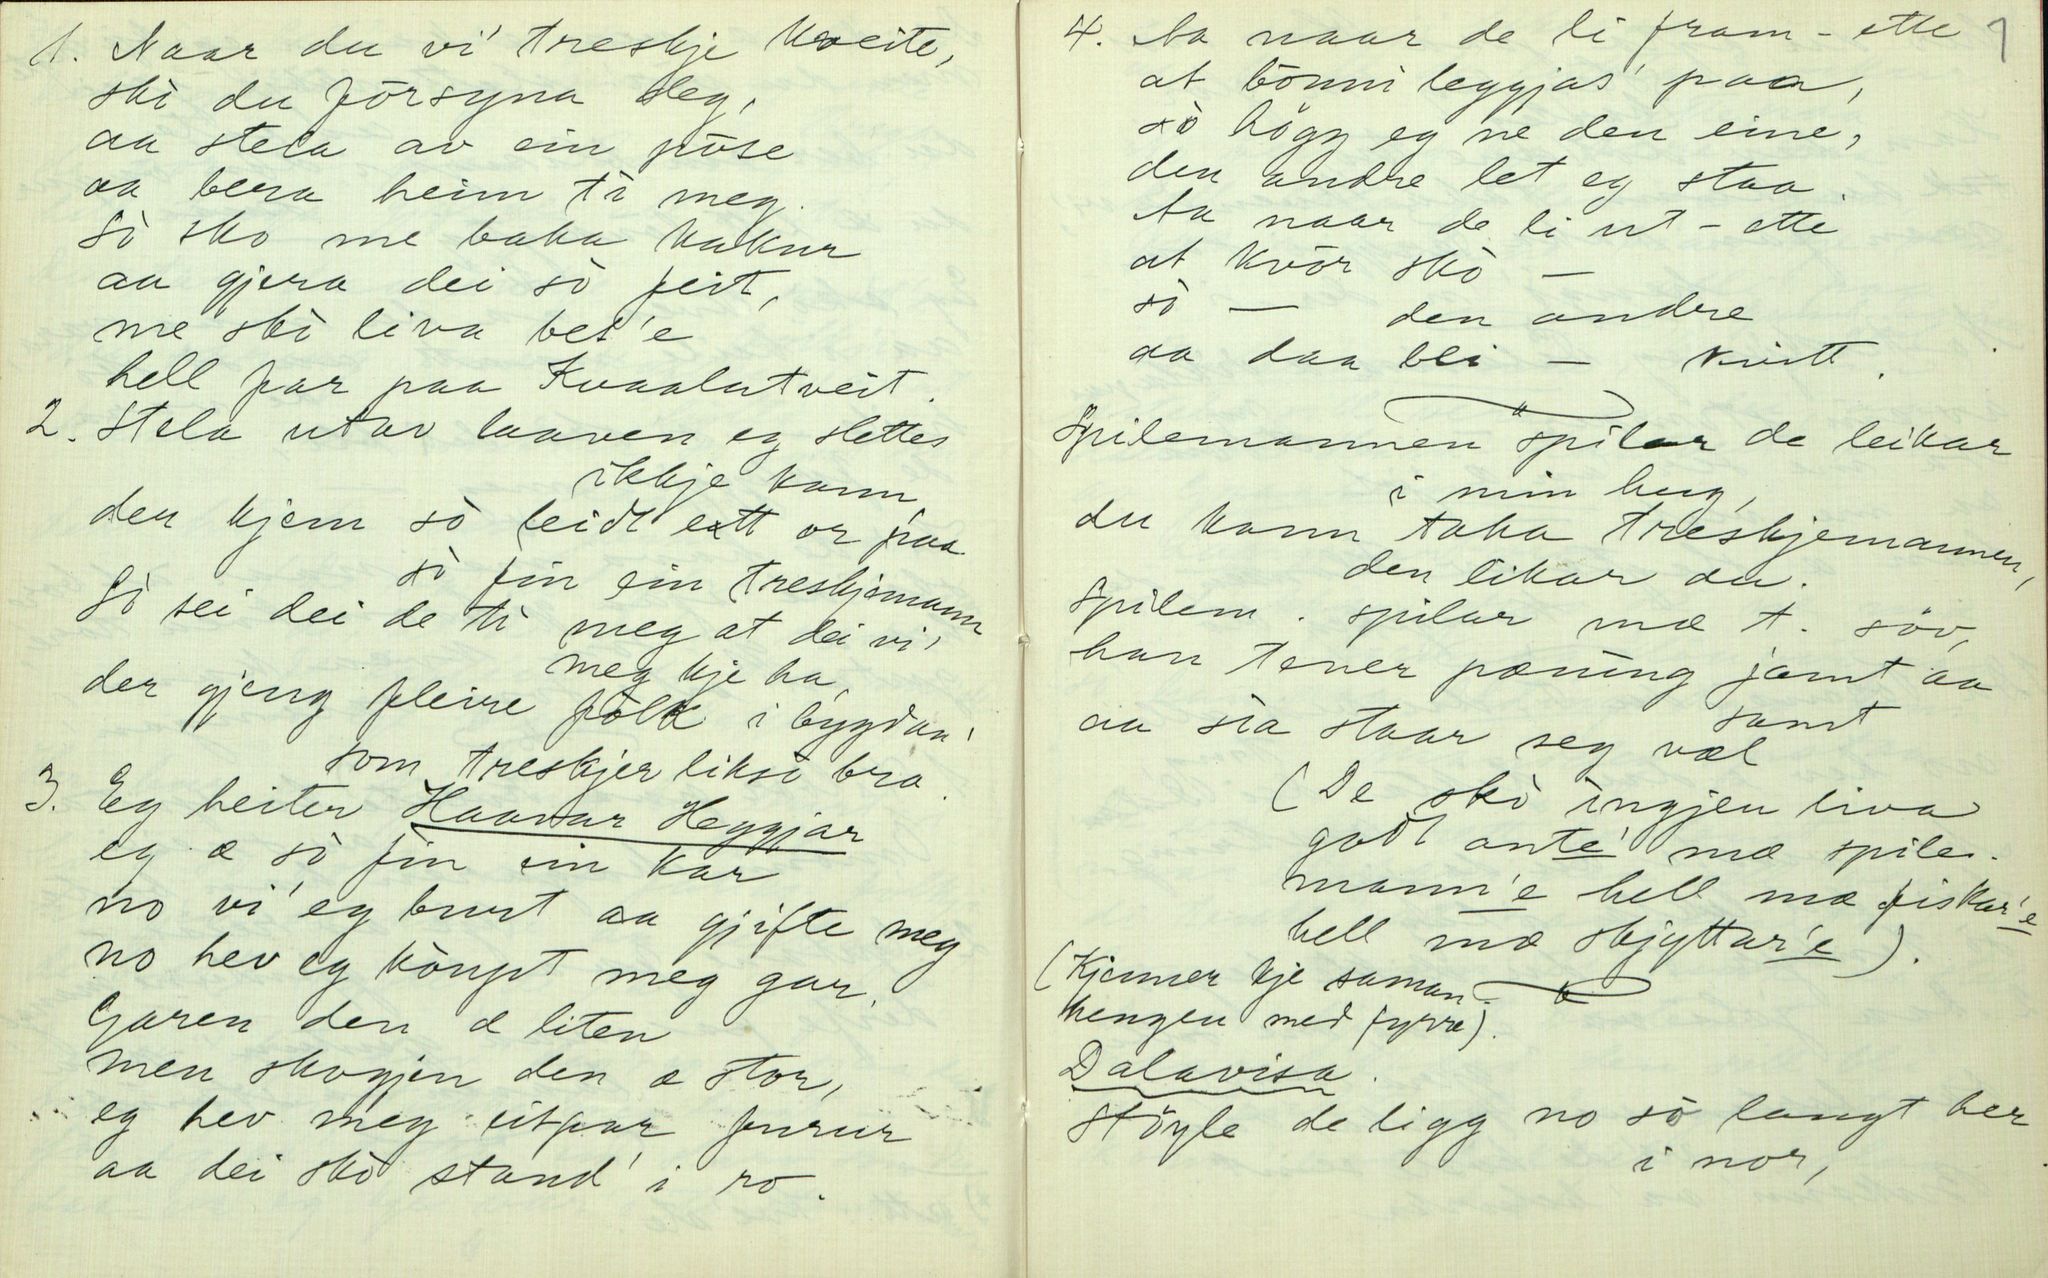 1. Naar du vi' treskje Kveite,
skò du försyna deg,
aa stela av ein pöse
aa bera heim ti meg.
Sò sko me baka kakur
aa gjera dei sò feit,
me skò liva bet'e
hell far paa Kvaalutveit.
2. Stela utav laaven eg slettes
ikkje kann,
der kjem sò leidt ett or paa
sò fin ein treskjemann
Sò sei dei de ti meg at dei vi'
meg kje ha,
der gjeng fleire fòlk i bygdaa'
som treskjer liksò bra.
3. Eg heiter Haavar Heggjar
eg æ sò fin ein kar
no vi' eg burt aa gjifte meg
no hev eg köupt meg gar.
Garen den æ liten
men skogjen den æ stor,
eg hev meg eitpar furur
aa dei skò stand' i ro.
7
4. Aa naar de li fram-ette
at bönni leggjas' paa,
sò högg eg ne den eine,
den andre let eg staa.
Aa naar de li ut-ette
at kvör skò —
sò — den andre
aa daa bli — kvitt.
Spilemannen spilar de leikar
i min hug,
du kann taka treskjemannen,
den likar du.
Spilem. spilar mæ t. söv,
han tener pæning jamt aa
samt
aa sia staar seg væl
(De skò ingjen liva
godt anté mæ spile-
mann'e hell mæ fiskar'e
hell mæ skjyttar'e).
(Kjenner kje saman-
hengen med fyrre).
Dalavisa.
Stöyle de ligg no sò langt her
i nor,